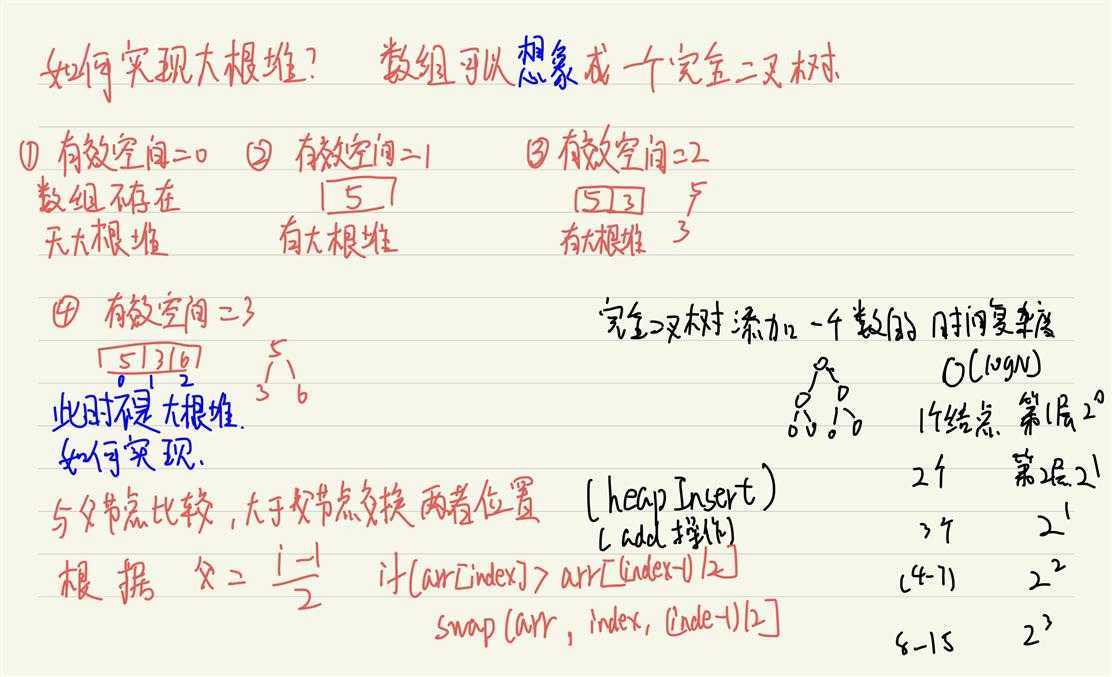 如何实现大根堆? 数组可以想象成一个完全二叉树
① 有效空间=0
数组不存在
无大根堆
② 有效空间=1
5
有大根堆
③ 有效空间=2
5 3
5
3
有大根堆
④ 有效空间=3
5 3 6
0 1 2
5
3 6
此时不是大根堆.
如何实现.
与父节点比较,大于父节点交换两者位置
根据 父= i-1/2
if(arr[index]> arr[(index-1)/2]
swap(arr, index, (inde-1)/2]
(heapInsert)
(add操作)
完全二叉树添加一个数的时间复杂度
O(logN)
1个结点 第1层2^0
2个 第2层2^1
3个 2^1
(4-7) 2^2
8-15 2^3